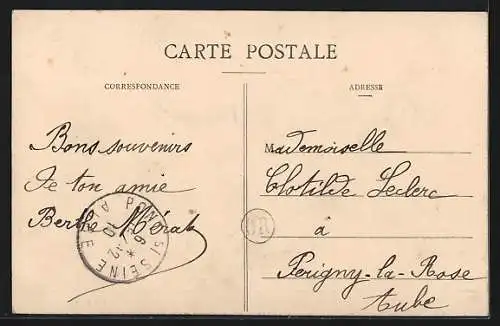 CARTE POSTALE
CORRESPONDANCE
ADRESSE
Bons souvenirs
De ton amie
Berthe Mérat
Mademoiselle
Clotilde Leclerc
à
Périgny-la-Rose
Aube
PONT S/SEINE AUBE